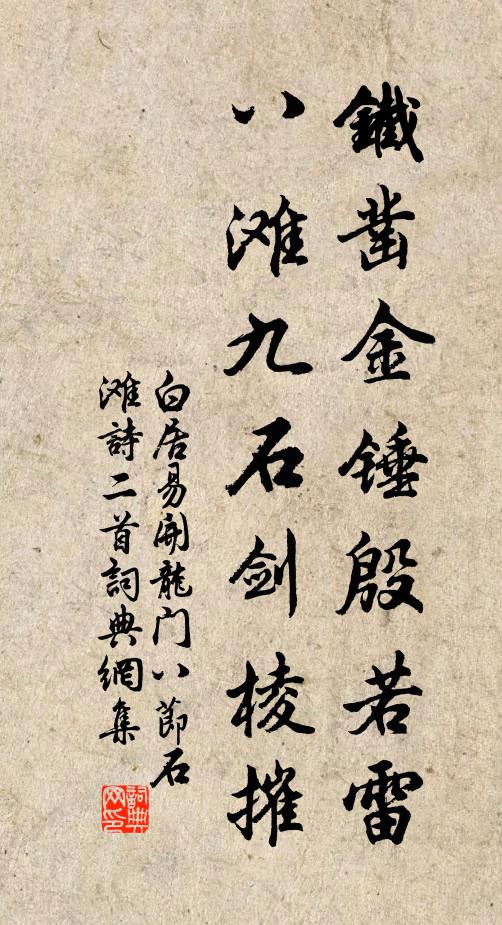 鐵凿金锤殷若雷
八滩九石剑棱摧
白居易開龍门八節石
滩詩二首詞典網集
詞典网印